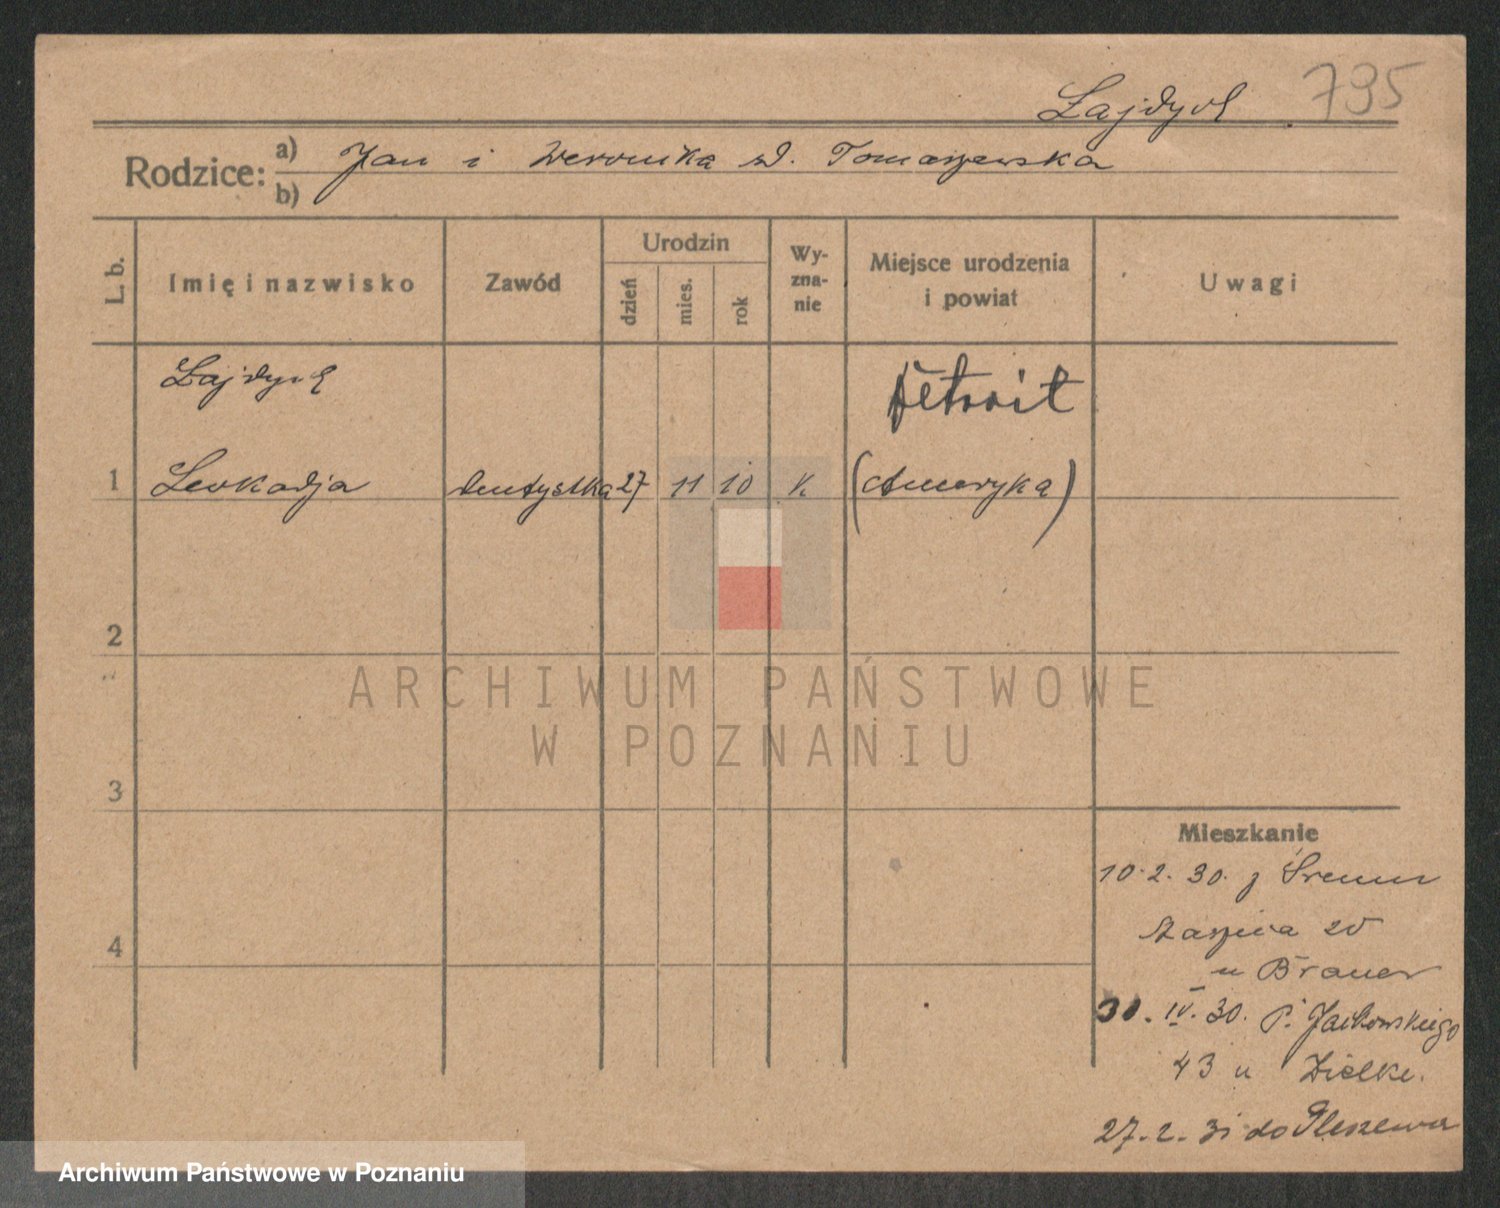 Łajdych 795
Rodzice: a) Jan i Weronika d. Tomaszewska
b)
L. b. Imię i nazwisko Zawód Urodzin dzień mies. rok Wyznanie Miejsce urodzenia i powiat Uwagi
Detroit
1 Leokadja dentystka 27 11 10 k (Ameryka)
2
ARCHIWUM PAŃSTWOWE
W POZNANIU
3
Mieszkanie
10.2.30. z Śremu
Staszica 20
u Brauer
4
30. IV. 30. P. Jackowskiego
43 u Zielke.
27.2.31 do Pleszewa
Archiwum Państwowe w Poznaniu